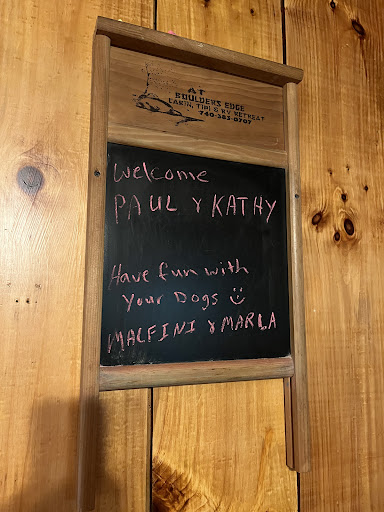 AT
BOULDERS EDGE
CABIN, TIPI & RV RETREAT
740-383-0707
Welcome
PAUL & KATHY
Have fun with
Your Dogs ☺
MALFINI & MARLA